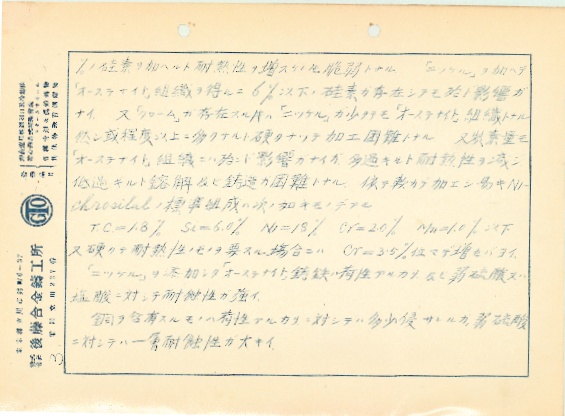 ％ノ硅素ヲ加ヘルト耐熱性ヲ増スケレモ脆弱トナル 「ニッケル」ヲ加ヘテ
「オーステナイト」組織ヲ得ルニ 6％以下ノ硅素ガ存在シテモ殆ド影響ガ
ナイ. 又「クローム」ガ存在スル時ハ「ニッケル」ガ少クテモ「オーステナイト」組織トナル
然シ或程度以上ニ多クナルト硬クナッテ加工困難トナル 又炭素量モ
「オーステナイト」組織ニハ殆ド影響ガナイガ多過ギルト耐熱性ヲ減ジ
低過ギルト鎔解及ビ鋳造ガ困難トナル. 依テ軟カデ加工シ易キNi-
chrosilalノ標準組成ハ次ノ如キモノデアル
T.C=1.8% Si=6.0% Ni=18% Cr=2.0% Mn=1.0%以下
又硬クテ耐熱性ノモノヲ要スル場合ニハ Cr=3.5%位マデ増セバヨイ.
「ニッケル」ヲ添加シタ「オーステナイト」鋳鉄ハ苛性アルカリ及ビ弱硫酸又ハ
塩酸ニ対シテ耐蝕性ガ強イ.
銅ヲ含有スルモノハ苛性アルカリニ対シテハ多少侵サレルガ, 弱硫酸
ニ対シテハ一層耐蝕性ガ大キイ.
GTO
株式会社 後藤合金鋳工所
3